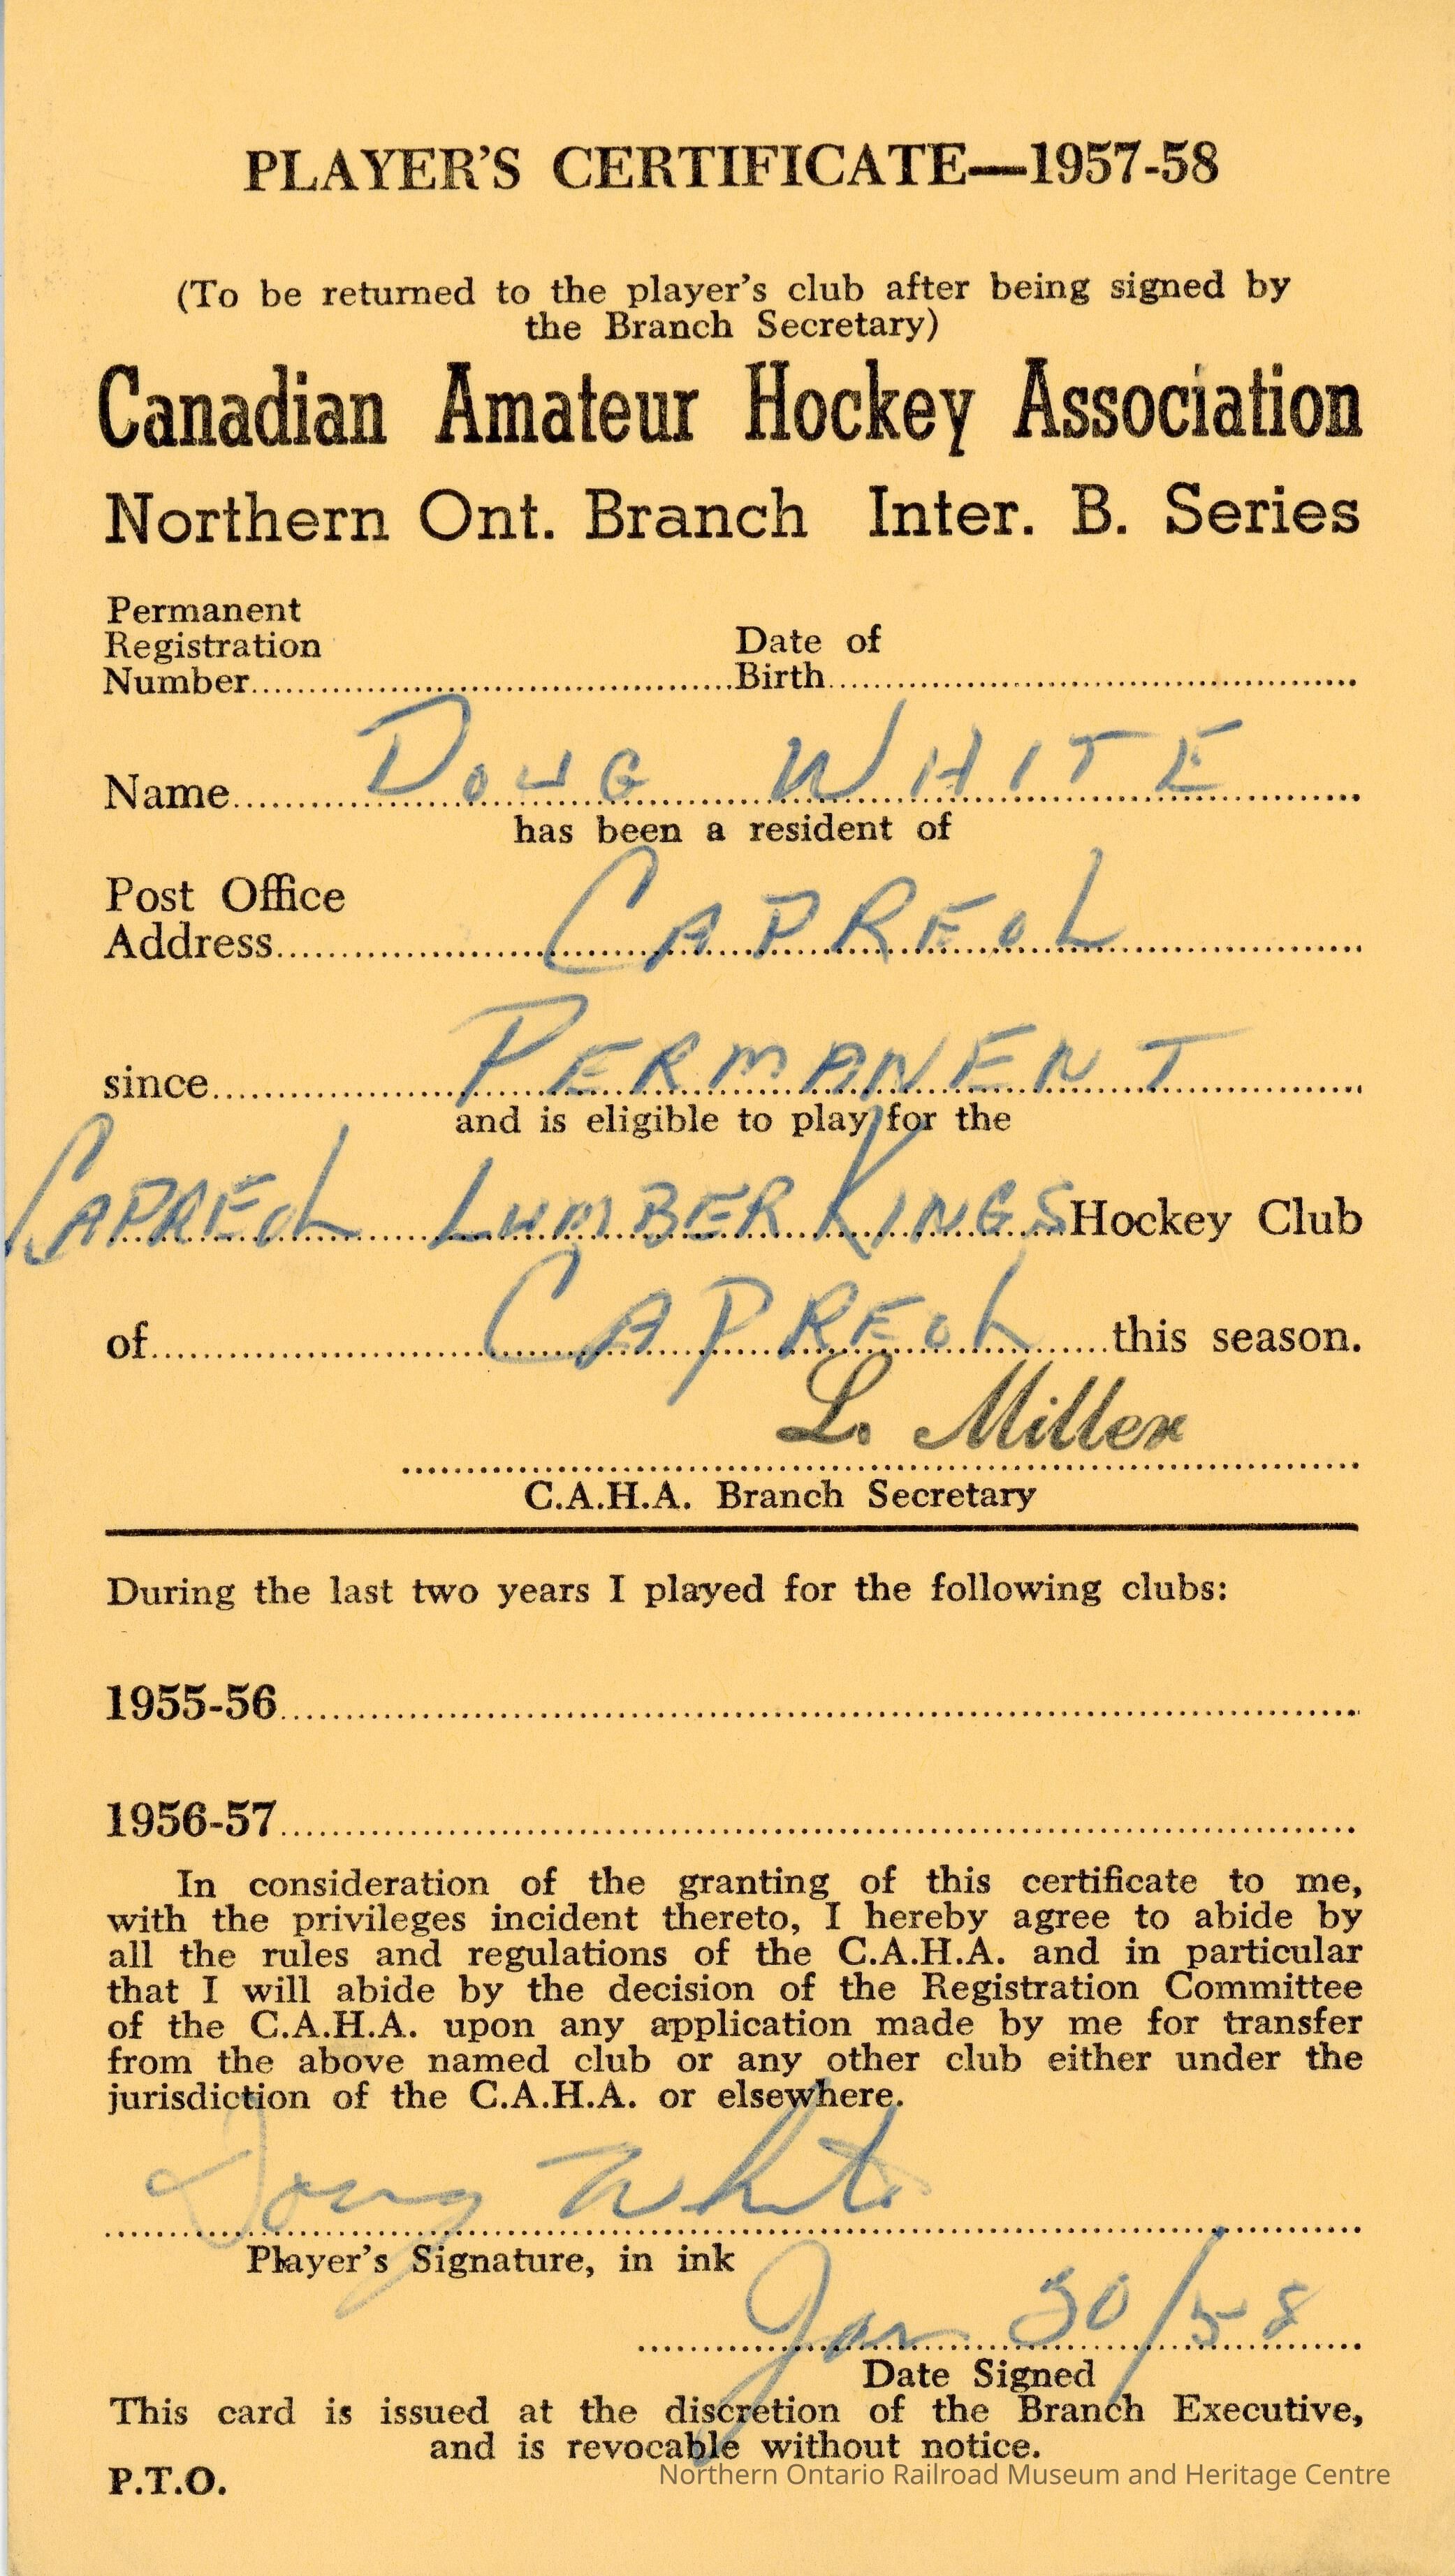 PLAYER'S CERTIFICATE—1957-58
(To be returned to the player's club after being signed by
the Branch Secretary)
Canadian Amateur Hockey Association
Northern Ont. Branch Inter. B. Series
Permanent
Registration
Number
Date of
Birth
Name DOUG WHITE
has been a resident of
Post Office
Address CAPREOL
since PERMANENT
and is eligible to play for the
CAPREOL LUMBER KINGS Hockey Club
of CAPREOL this season.
L. Miller
C.A.H.A. Branch Secretary
During the last two years I played for the following clubs:
1955-56
1956-57
In consideration of the granting of this certificate to me,
with the privileges incident thereto, I hereby agree to abide by
all the rules and regulations of the C.A.H.A. and in particular
that I will abide by the decision of the Registration Committee
of the C.A.H.A. upon any application made by me for transfer
from the above named club or any other club either under the
jurisdiction of the C.A.H.A. or elsewhere.
Doug White
Player's Signature, in ink
Jan 30/58
Date Signed
This card is issued at the discretion of the Branch Executive,
and is revocable without notice.
P.T.O.
Northern Ontario Railroad Museum and Heritage Centre